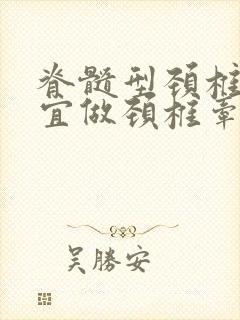 脊髓型颈椎
宜做颈椎牵
吴勝安